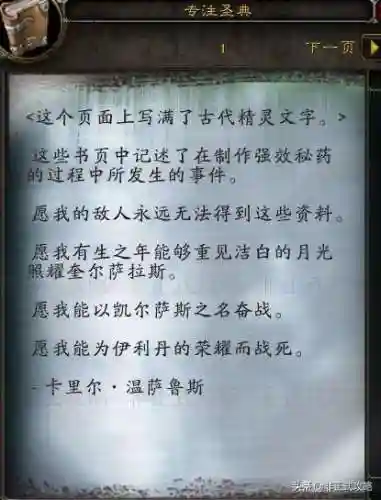 专注圣典
1
下一页
<这个页面上写满了古代精灵文字。>
这些书页中记述了在制作强效秘药
的过程中所发生的事件。
愿我的敌人永远无法得到这些资料。
愿我有生之年能够重见洁白的月光
照耀奎尔萨拉斯。
愿我能以凯尔萨斯之名奋战。
愿我能为伊利丹的荣耀而战死。
-卡里尔·温萨鲁斯